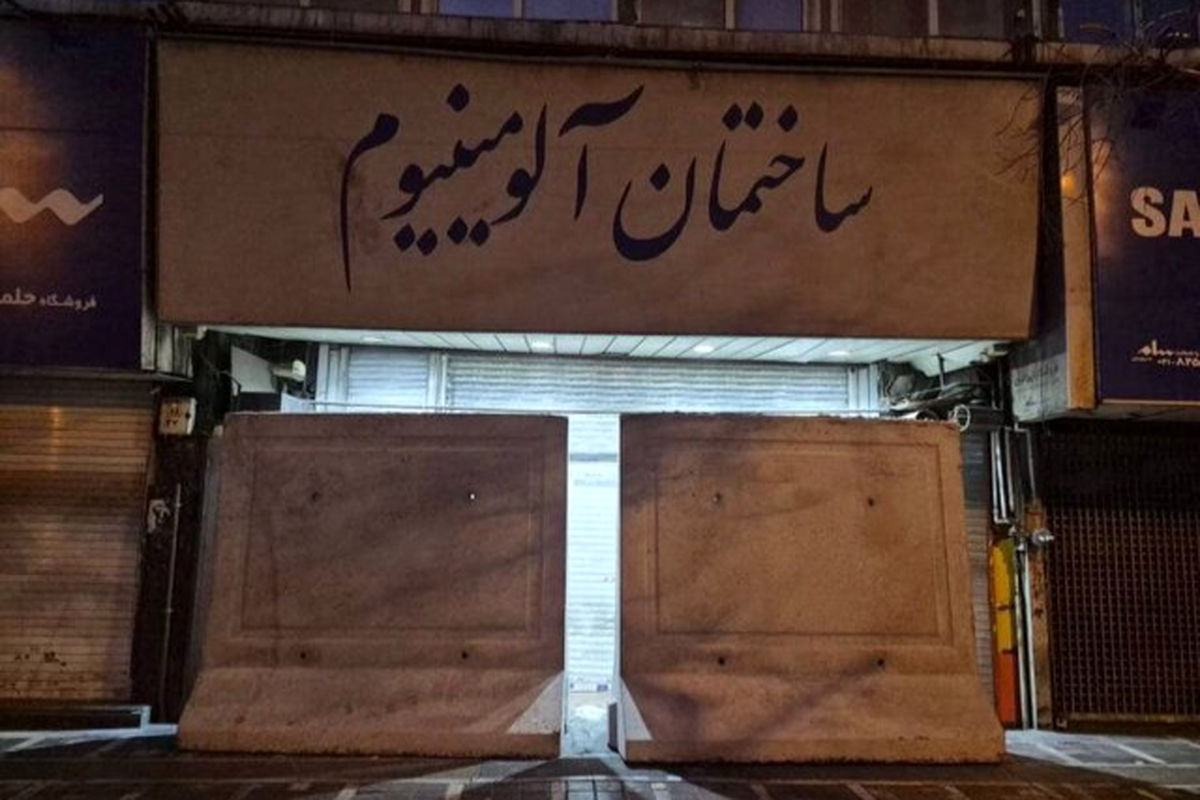 ساختمان آلومینیوم
فروشگاه
SA